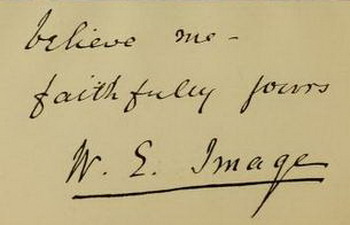 believe me -
faithfully yours
W. E. Image